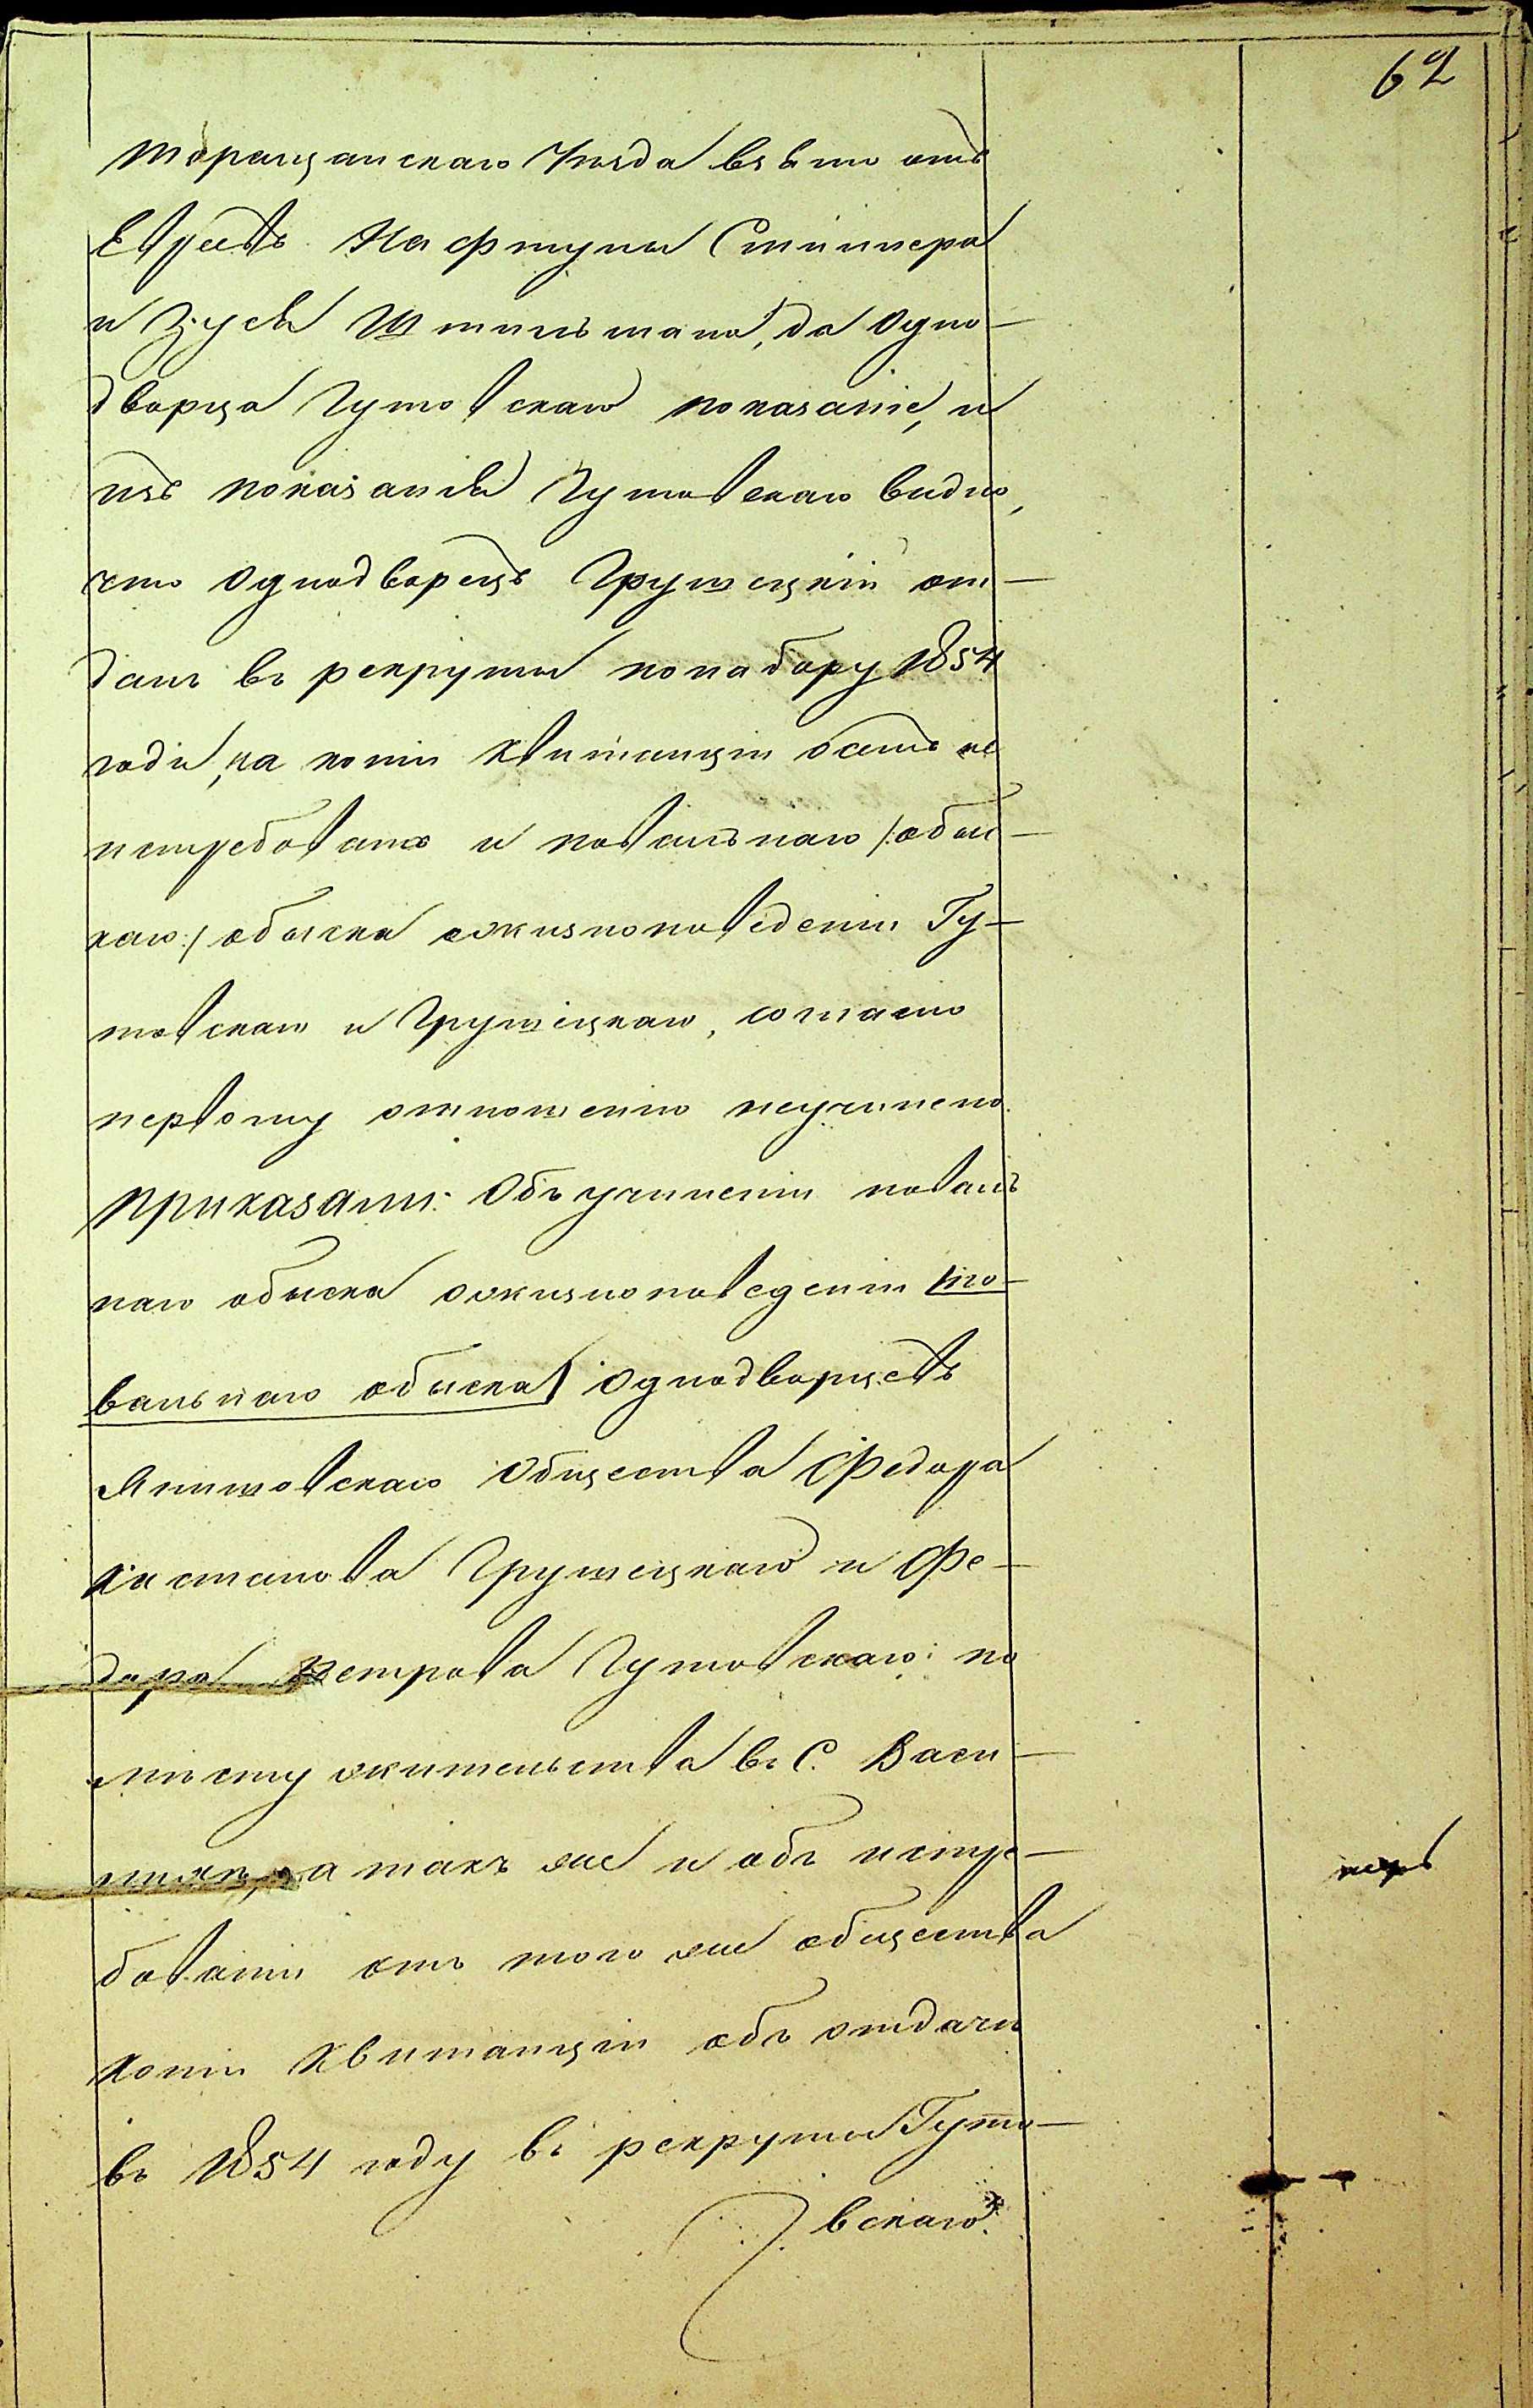 62
Таращанскаго Уѣзда взято отъ
Евреевъ Нафтулы Стиннера
и Зуся Штильмана, да одно-
дворца Гутовскаго показаніе, и
изъ показанія Гутовскаго видно,
что однодворецъ Грушецкій от-
данъ въ рекруты по набору 1854
года, но копіи квитанціи о семъ не
истребовано и повальнаго /:обыс-
каго:/ обыска о жизноповеденіи Гу-
товскаго и Грушецкаго, согласно
первому отношенію неучинено.
Приказали: Объ учиненіи поваль-
наго обыска о жизноповеденіи /по-
вальнаго обыска/ однодворцевъ
Янишовскаго Общества Федора
Касianова Грушецкаго и Фе-
дора Петрова Гутовскаго: по
мѣсту жительства въ С. Васи-
, а такъ же и объ истре-
бованіи отъ того же общества
копіи квитанціи объ отдачи
въ 1854 году въ рекруты Гуто-
вскаго